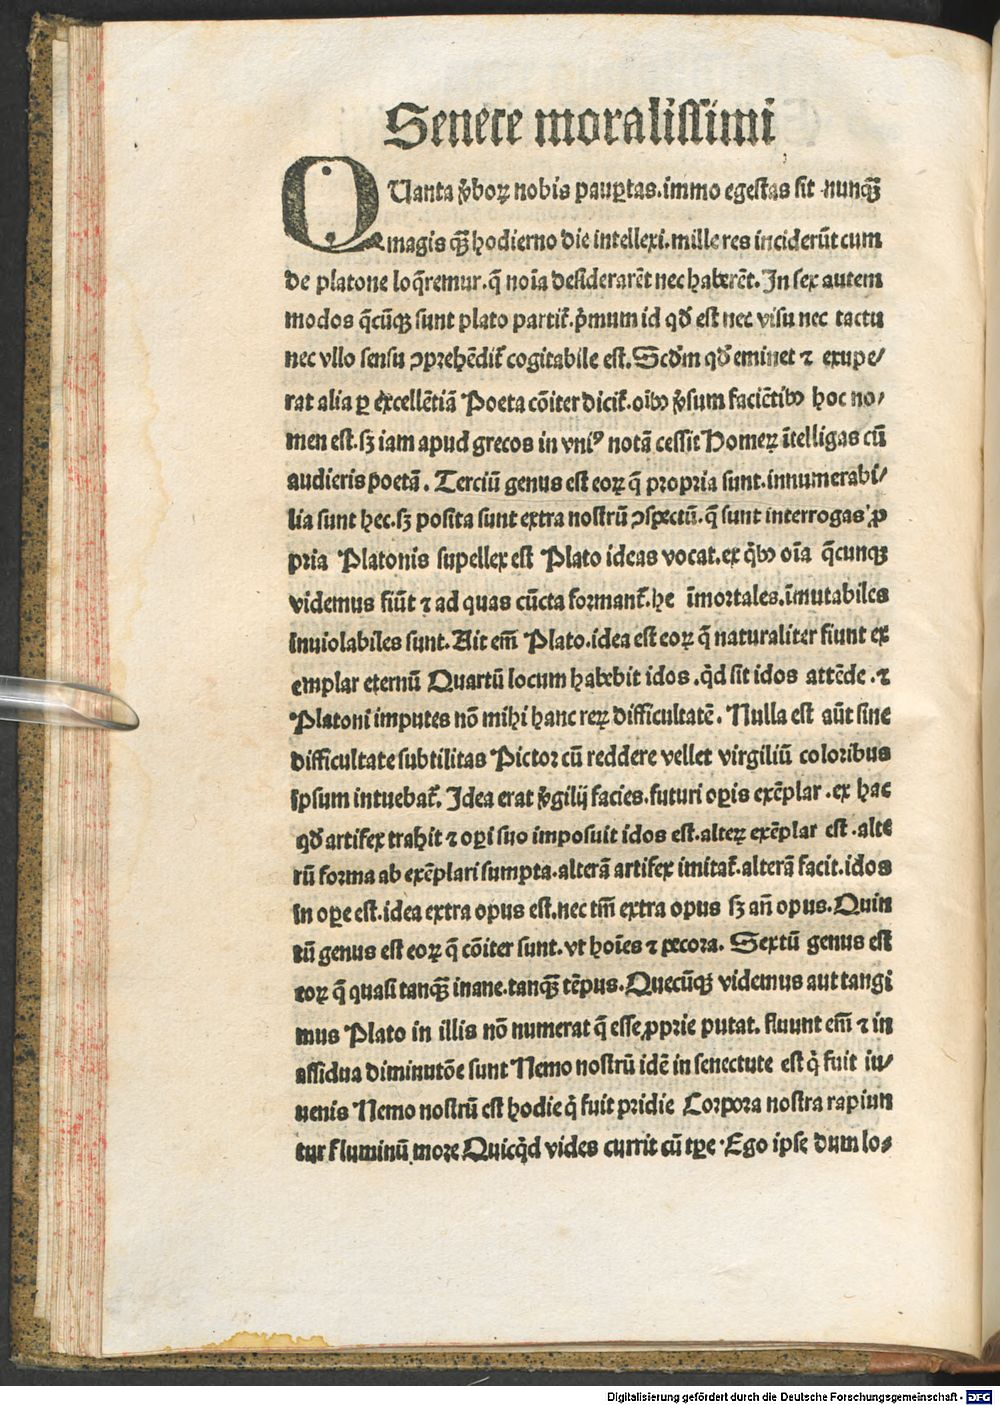 Senece moralissimi
QUanta ꝟboꝝ nobis pauꝑtas.immo egestas sit .nunqꝫ̃
magis qꝫ̃ hodierno die intellexi.mille res inciderũt cum
de platone loq̃remur.q̃ noĩa desiderarẽt nec haberẽt. In sex autem
modos q̃cũqꝫ sunt plato partit̃. p̃mum id qđ est nec visu nec tactu
nec vllo sensu ꝯprehẽdit̃ cogitabile est. Scđm qđ eminet ⁊ exupe/
rat alia ꝑ excellẽtiã Poeta cõiter dicit̃.oĩbꝰ ꝟsum faciẽtibꝰ hoc no/
men est.sꝫ iam apud grecos in vniꝰ notã cessit Homeꝝ ĩtelligas cũ
audieris poetã. Terciũ genus est eoꝝ q̃ propria sunt.innumerabi/
lia sunt hec.sꝫ posita sunt extra nostrũ ꝯspectũ.q̃ sunt interrogas ꝓ
pria Platonis supellex est Plato ideas vocat.ex q̃bꝰ oĩa q̃cunqꝫ
videmus fiũt ⁊ ad quas cũcta formant̃.he ĩmortales.ĩmutabiles
inuiolabiles sunt. Ait em̃ Plato.idea est eoꝝ q̃ naturaliter fiunt ex
emplar eternũ Quartũ locum habebit idos .q̇d sit idos attẽde .⁊
Platoni imputes nõ mihi hanc reꝝ difficultatẽ. Nulla est aũt sine
difficultate subtilitas Pictor cũ reddere vellet virgiliũ coloribus
ipsum intuebat̃. Idea erat ꝟgilij facies.futuri oꝑis exẽplar .ex hac
qđ artifex trahit ⁊ oꝑi suo imposuit idos est.alteꝝ exẽplar est .alte
rũ forma ab exẽplari sumpta.alterã artifex imitat̃.alterã facit.idos
in oꝑe est.idea extra opus est.nec tm̃ extra opus sꝫ añ opus. Quin
tũ genus est eoꝝ q̃ cõiter sunt.vt hoĩes ⁊ pecora. Sextũ genus est
eoꝝ q̃ quasi tanqꝫ̃ inane.tanqꝫ̃ tẽpus. Quecũqꝫ videmus aut tangi
mus Plato in illis nõ numerat q̃ esse ꝓprie putat. fluunt em̃ ⁊ in
assidua diminutõe sunt Nemo nostrũ idẽ in senectute est q̇ fuit iu/
uenis Nemo nostrũ est hodie q̇ fuit pridie Corpora nostra rapiun
tur fluminũ more Quicq̇d vides currit cũ tꝑe .Ego ipse dum lo/
Digitalisierung gefördert durch die Deutsche Forschungsgemeinschaft - DFG